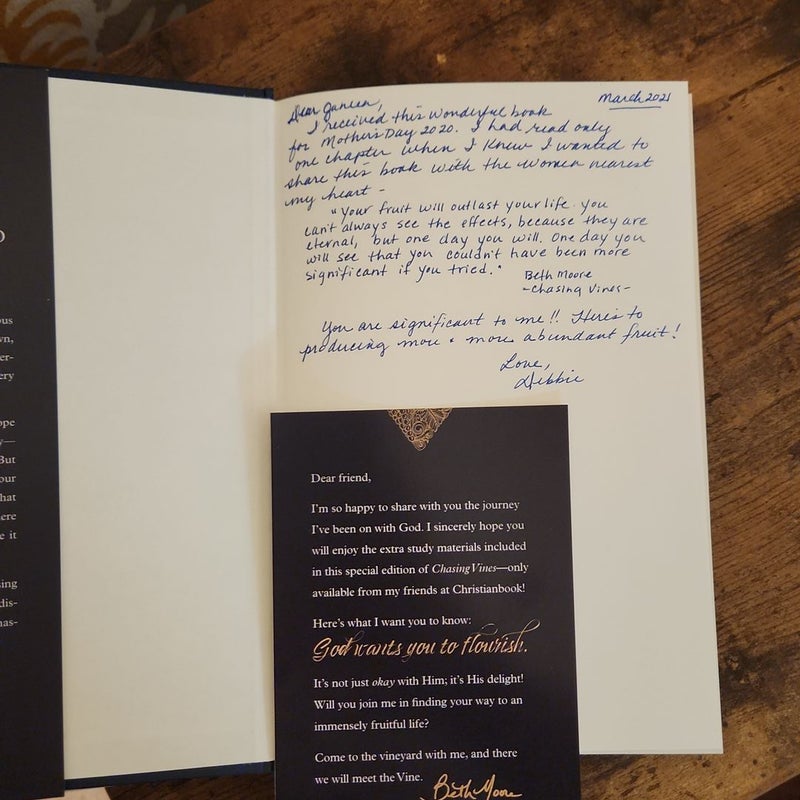 March 2021
Dear Janeen,
I received this wonderful book
for Mother's Day 2020. I had read only
one chapter when I knew I wanted to
share this book with the women nearest
my heart -
"Your fruit will outlast your life. you
can't always see the effects, because they are
eternal, but one day you will. One day you
will see that you couldn't have been more
significant if you tried."
Beth Moore
-Chasing Vines-
You are significant to me!! Here's to
producing more & more abundant fruit!
Love,
Debbie
Dear friend,
I'm so happy to share with you the journey
I've been on with God. I sincerely hope you
will enjoy the extra study materials included
in this special edition of Chasing Vines—only
available from my friends at Christianbook!
Here's what I want you to know:
God wants you to flourish.
It's not just okay with Him; it's His delight!
Will you join me in finding your way to an
immensely fruitful life?
Come to the vineyard with me, and there
we will meet the Vine.
Beth Moore